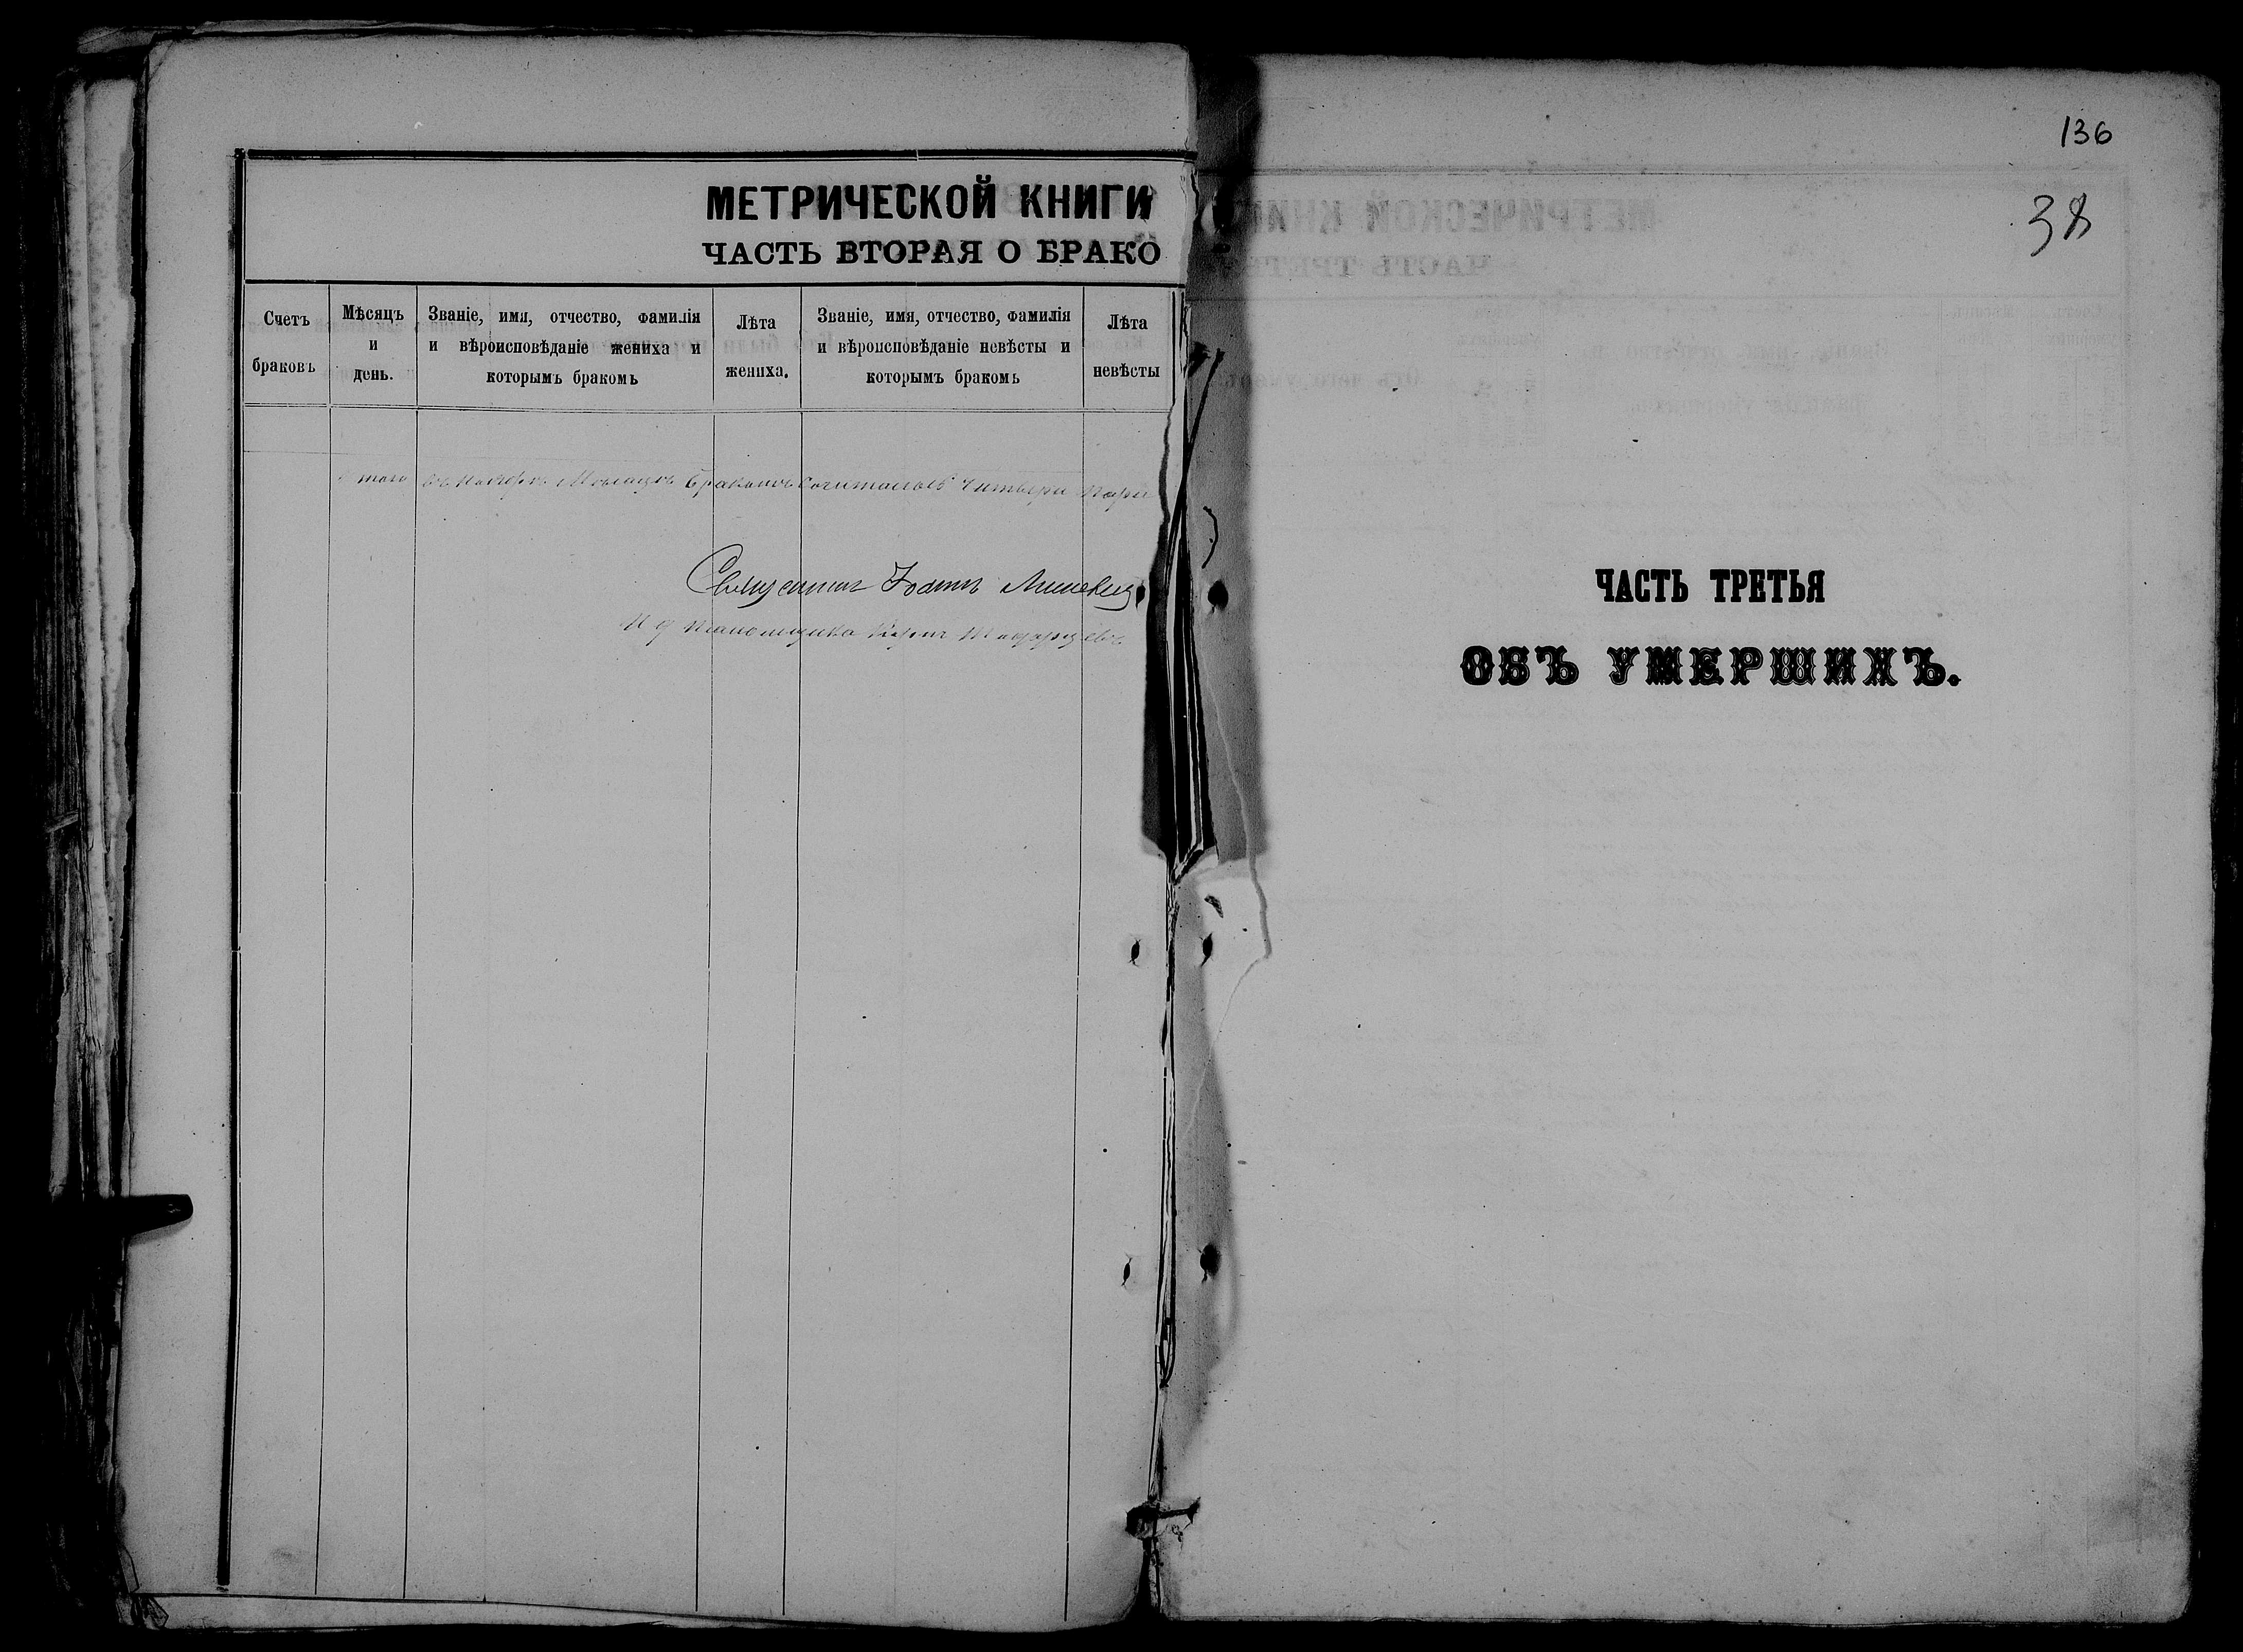 МЕТРИЧЕСКОЙ КНИГИ
ЧАСТЬ ВТОРАЯ О БРАКО
Счетъ браковъ
Мѣсяцъ и день.
Званіе, имя, отчество, фамилія и вѣроисповѣданіе жениха и которымъ бракомъ
Лѣта жениха.
Званіе, имя, отчество, фамилія и вѣроисповѣданіе невѣсты и которымъ бракомъ
Лѣта невѣсты
Итого въ Ноябрѣ Мѣсяцѣ Бракомъ Сочиталось Читыри Пары
Священникъ Іоаннъ
И д псаломщика
136
38
ЧАСТЬ ТРЕТЬЯ
ОБЪ УМЕРШИХЪ.